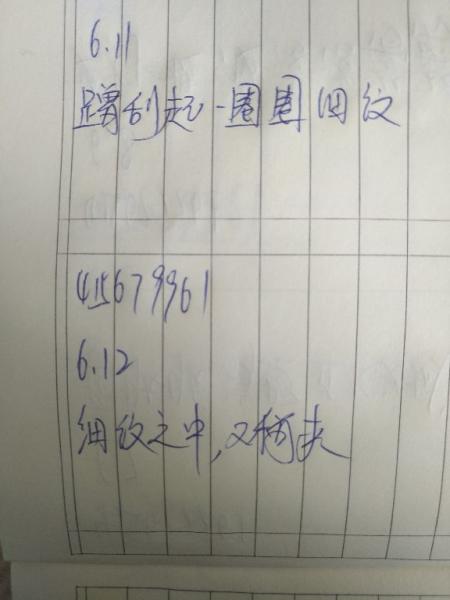 6.11
蹭刮起一圈圈细纹
415679961
6.12
细纹之中,又夹